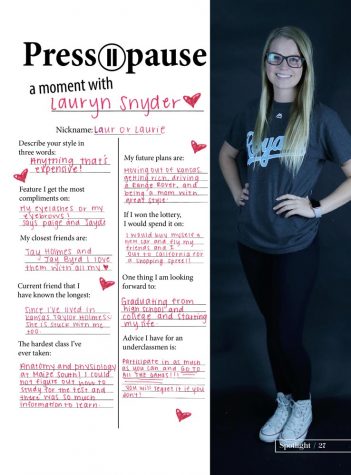 Press pause
a moment with
Lauryn Snyder
Nickname: Laur or Laurie
Describe your style in
three words:
Anything that's
expensive!
Feature I get the most
compliments on:
My eyelashes or my
eyebrows!
Says Paige and Jayde
My closest friends are:
Jay Holmes and
Jay Byrd I love
them with all my
Current friend that I
have known the longest:
Since I've lived in
Kansas Taylor Holmes
she is stuck with me
too.
The hardest class I've
ever taken:
Anatomy and physiology
at Maize South! I could
not figure out how to
study for the test and
there was so much
information to learn.
My future plans are:
Moving out of Kansas,
getting rich, driving
a Range Rover, and
being a mom with
great style
If I won the lottery,
I would spend it on:
I would buy myself a
new car and fly my
friends and I
out to California for
a shopping spree!!
One thing I am looking
forward to:
Graduating from
high school and
college and starting
my life
Advice I have for an
underclassmen is:
Participate in as much
as you can and GO TO
ALL THE GAMES!!!
You will regret it if you
don't!
Royals
Spotlight / 27